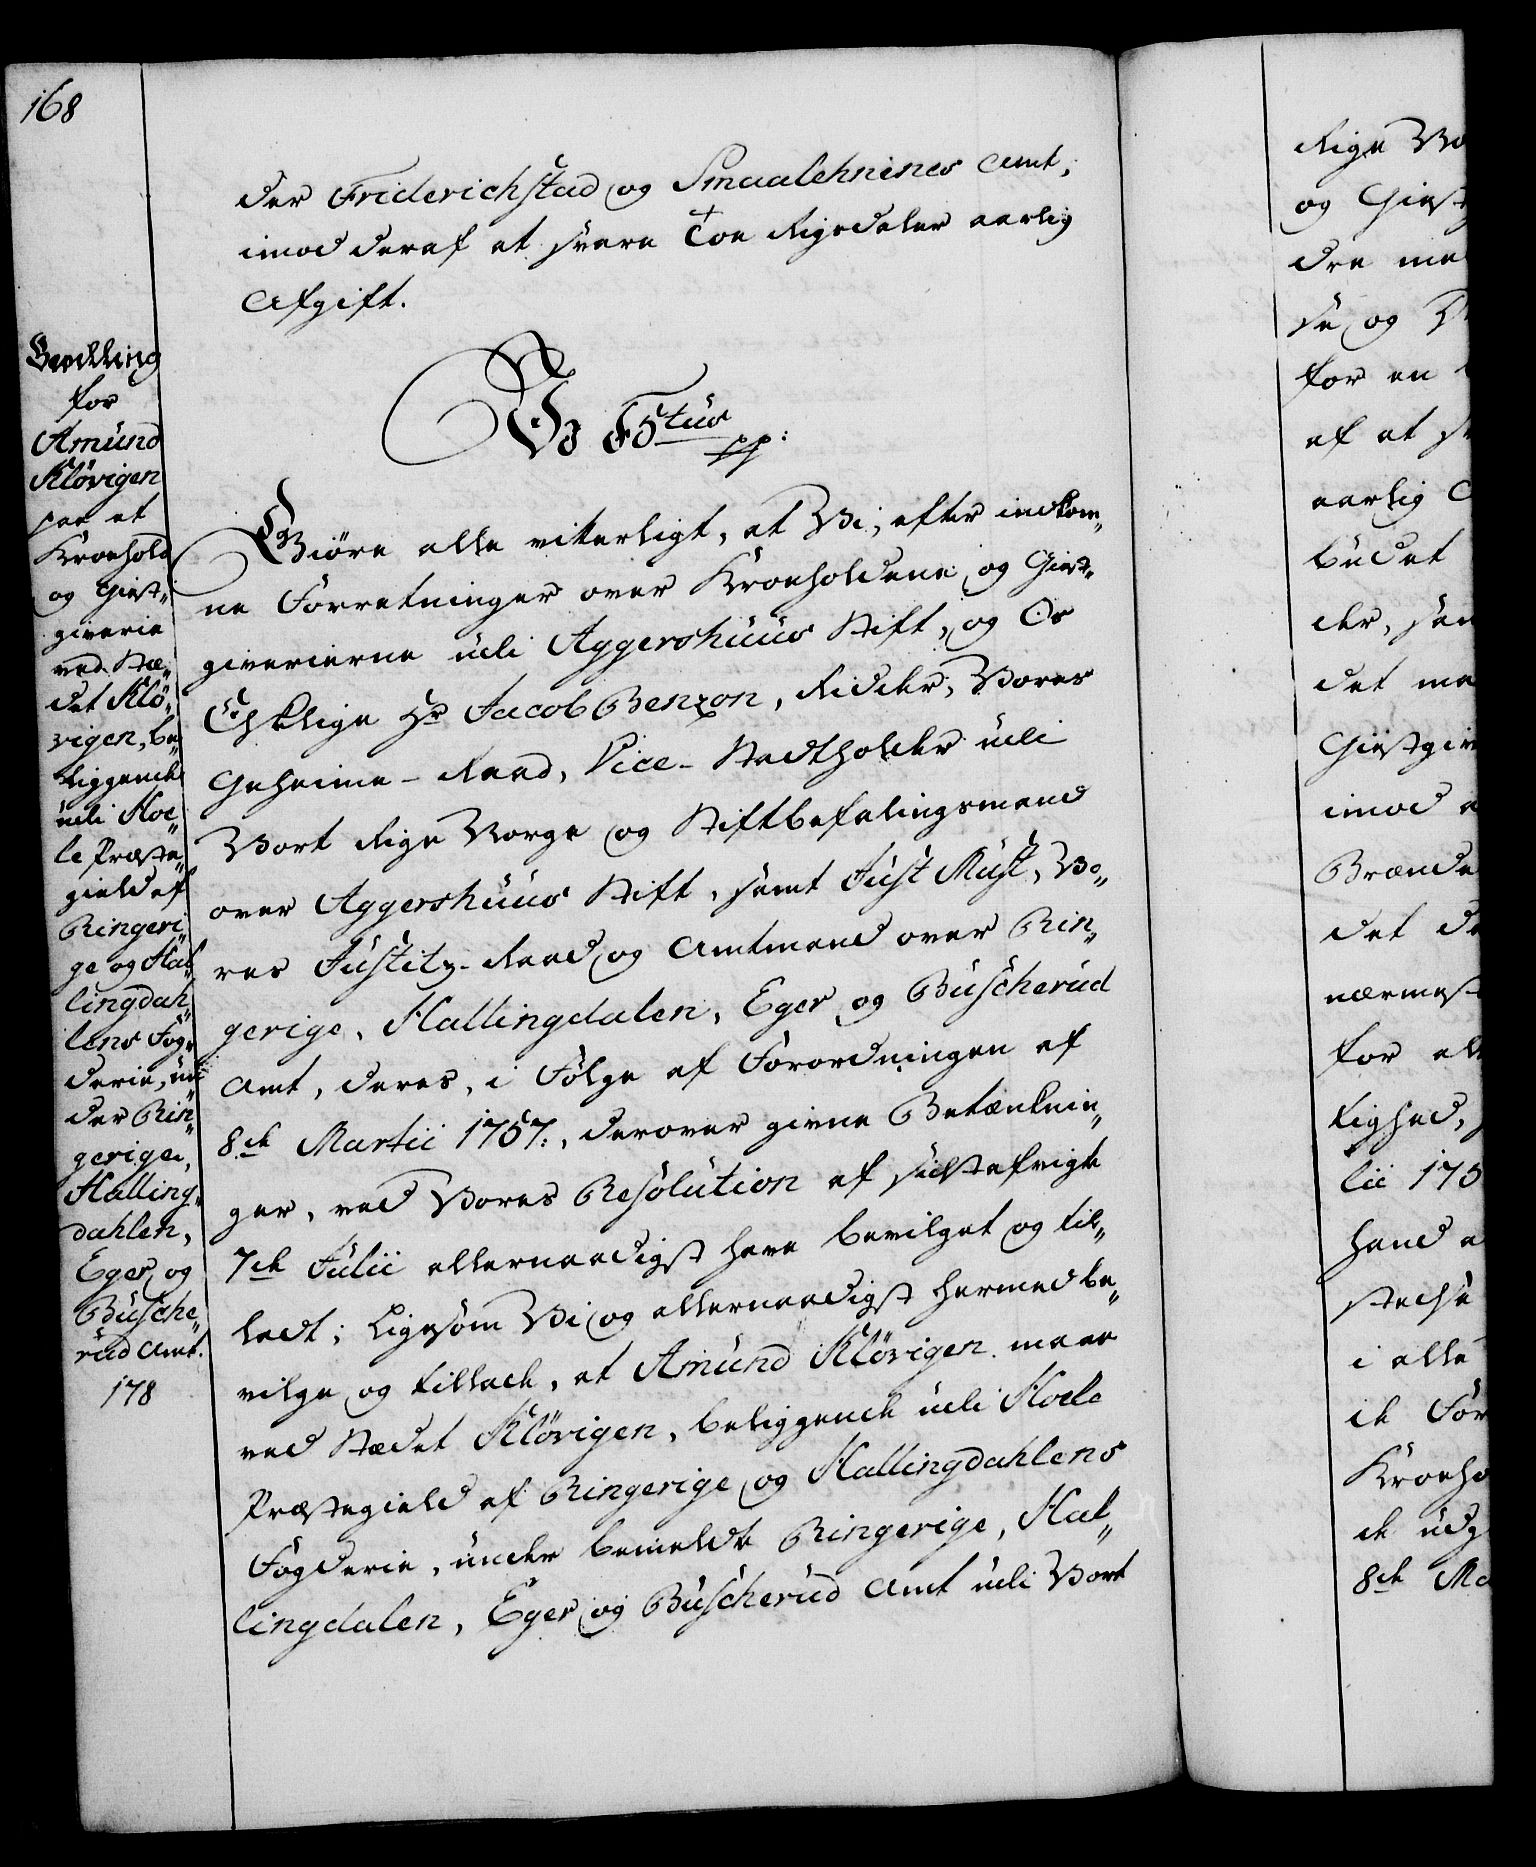 168
der Friderichstad og Smaalehnenes Amt,
imod deraf at svare Toe Rigsdaler aarlig
Afgift.
Bevilling
for
Amund
Kløvigen
paa et
Kroehold
og Giest„
giverie
ved Stæ„
det Klø„
vigen, be„
liggende
udi Hoe„
le Præste„
gield af
Ringeri„
ge og Hal„
lingdah„
lens Fog„
derie, un„
der Rin„
gerige,
Halling„
dahlen,
Eger og
Busche„
rud Amt.
178
V F5tus
pp:
Giøre alle vitterligt, at Vi, efter indkom„
ne Forretninger over Kroeholdene og Giest„
giverierne udi Aggershuus Stift, og Os
Elskelige Hr Jacob Benzon, Ridder, Vores
Geheime-Raad, Vice-Stadtholder udi
Vort Rige Norge og Stiftbefalingsmand
over Aggershuus Stift, samt Just Must, Vo„
res Justitz-Raad og Amtmand over Rin„
gerige, Hallingdalen, Eger og Buscherud
Amt, deres, i Følge af Forordningen af
8de Martii 1757:, derover givne Betænknin„
ger, ved Vores Resolution af sidstafvigte
7de Julii allernaadigst have bevilget og til„
ladt; Ligesom Vi og allernaadigst hermed be„
vilge og tillade, at Amund Kløvigen maae
ved Stædet Kløvigen, beliggende udi Hoele
Præstegield af Ringerige og Hallingdahlens
Fogderie, under bemeldte Ringerige, Hal„
lingdalen, Eger og Buscherud Amt udi Vort
Rige No
og Giest
dre me
se og D
for en
af at s
aarlig
budet
der, sa
det me
Giestgiv
imod
Brænde
det d
nærmest
for all
tighed,
lii 175
hand
stelse
i alle
de For
Kroeho
de udg
8de Ma